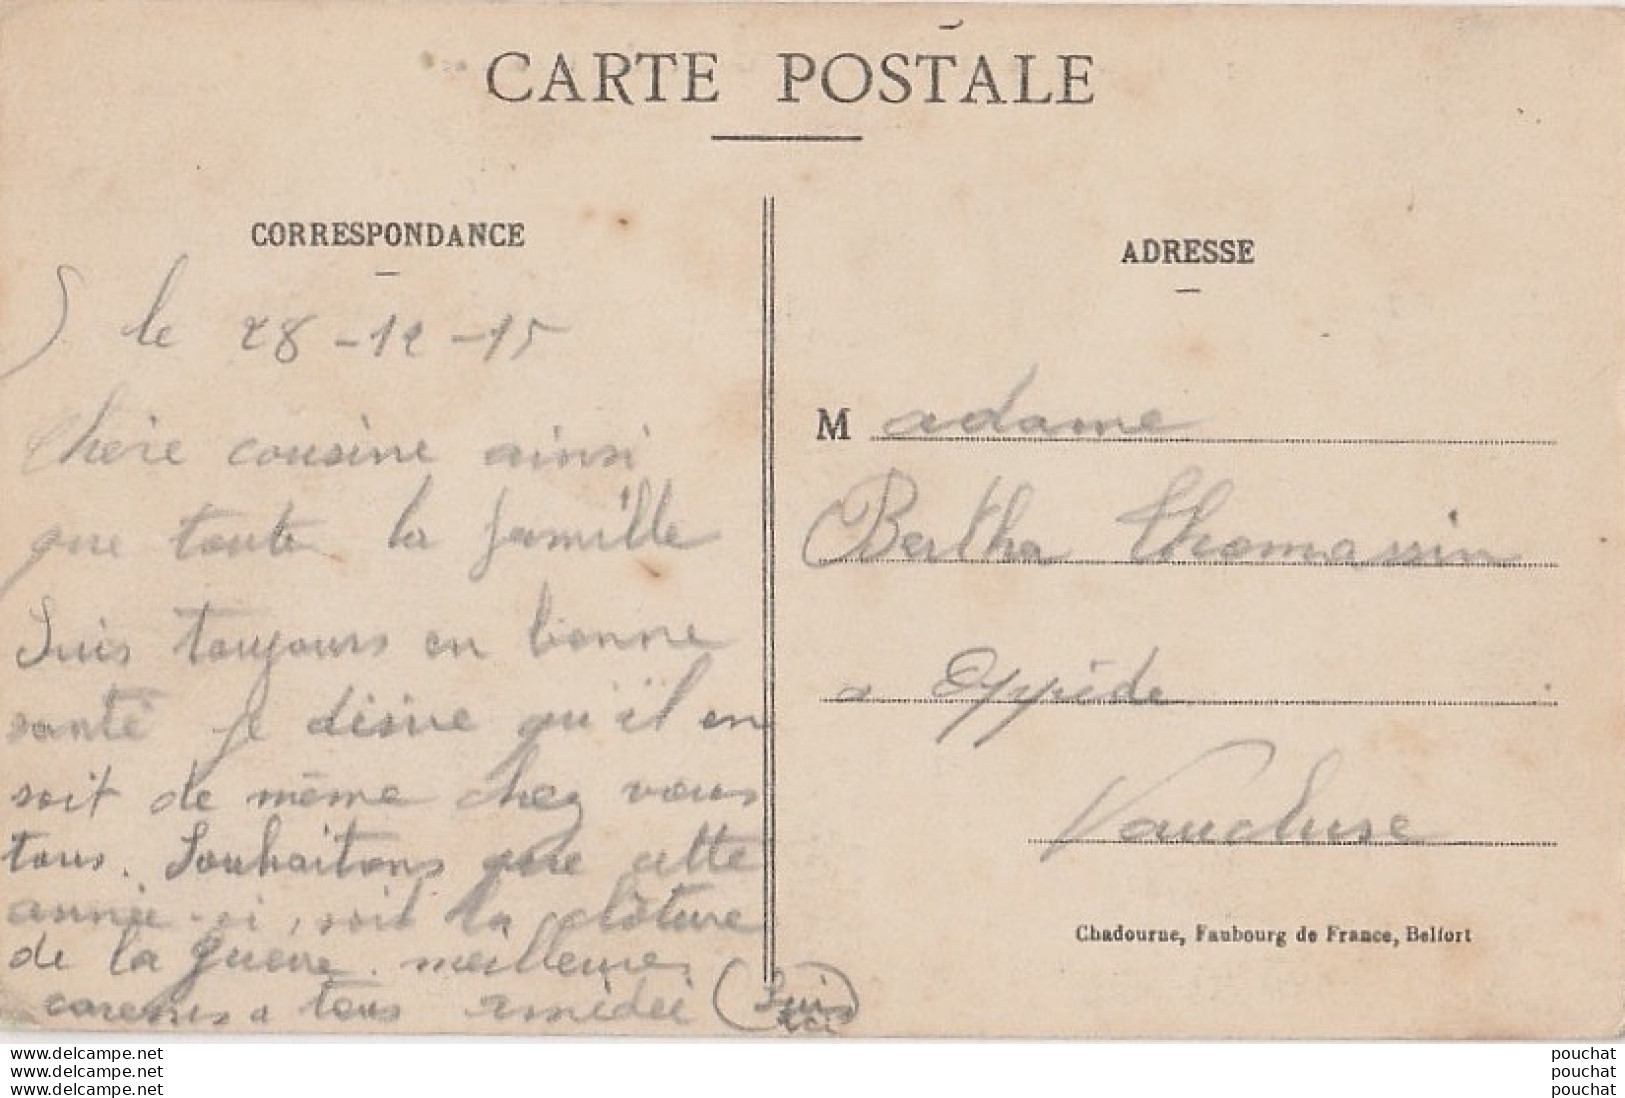 CARTE POSTALE
CORRESPONDANCE
le 28-12-15
Chère cousine ainsi
que toute la famille
Suis toujours en bonne
santé je désire qu'il en
soit de même chez vous
tous. Souhaitons que cette
année-ci, soit la clôture
de la guerre. meilleures
caresses a tous
ADRESSE
Madame
Bertha Thomassin
a Oppède
Vaucluse
Chadourne, Faubourg de France, Belfort
www.delcampe.net
www.delcampe.net
www.delcampe.net
pouchat
pouchat
pouchat